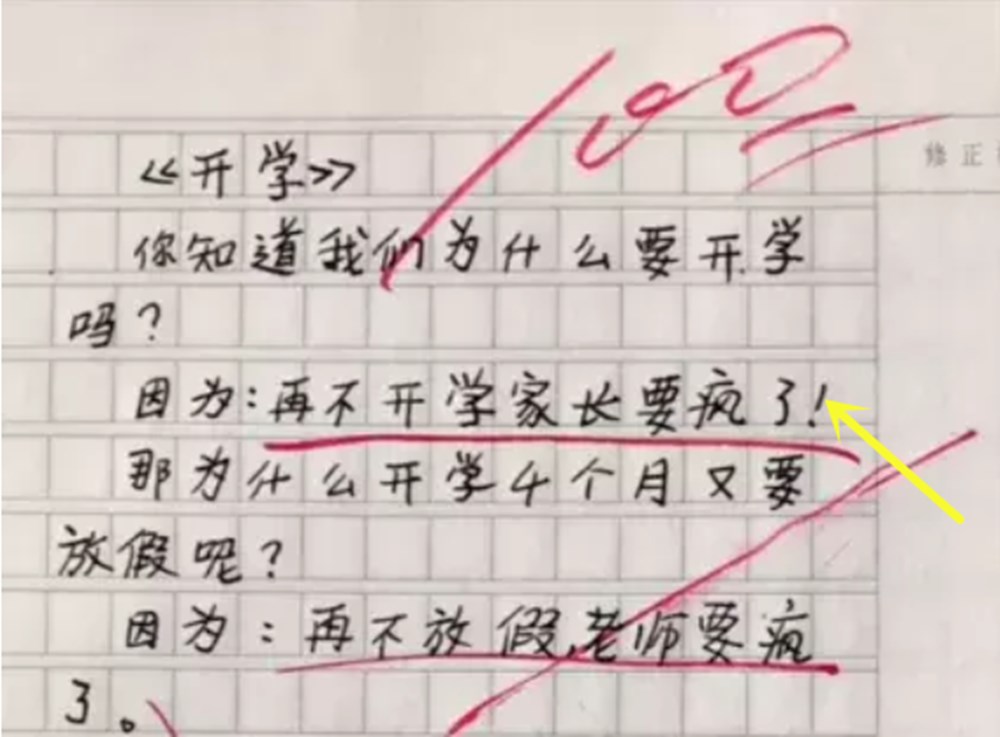 100
《开学》
修正
你知道我们为什么要开学
吗？
因为：再不开学家长要疯了！
那为什么开学4个月又要
放假呢？
因为：再不放假，老师要疯
了。